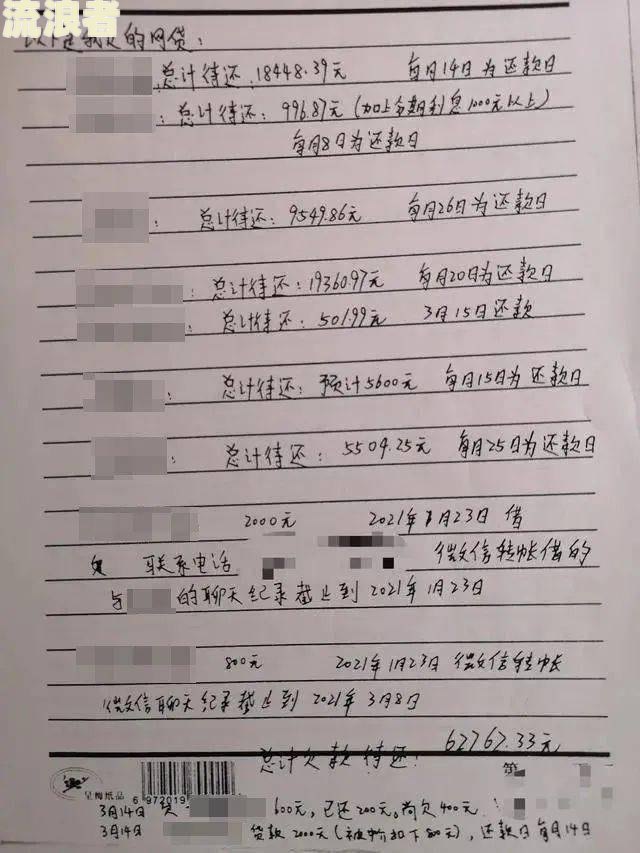 流浪者
以下是我欠的网贷：
总计待还：18448.39元 每月14日为还款日
：总计待还：996.87元（加上多期利息1000元以上）
每月8日为还款日
： 总计待还：9549.86元 每月26日为还款日
：总计待还：19360.97元 每月20日为还款日
：总计待还：501.99元 3月15日还款
： 总计待还：预计5600元 每月15日为还款日
： 总计待还：5504.25元 每月25日为还款日
2000元 2021年1月23日借
联系电话 微信转帐借的
与 的聊天纪录截止到2021年1月23日
800元 2021年1月23日 微信转帐
微信聊天纪录截止到2021年3月8日
总计欠款待还：62762.33元
呈梅纸品 6 972019 第
3月14日 欠 600元，已还200元，尚欠400元
3月14日 贷款2000元（被中介扣下800元），还款日每月14日